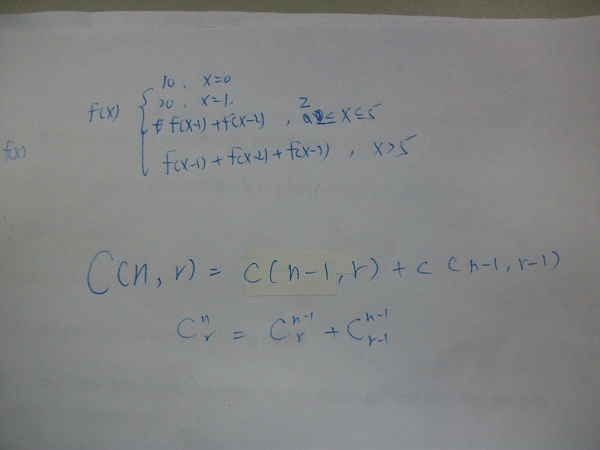 10, x=0
f(x) { 20, x=1.
f(x-1)+f(x-2), 2≤x≤5
f(x)
f(x-1)+f(x-2)+f(x-3), x>5
C(n,r) = C(n-1,r)+C(n-1,r-1)
C^n_r = C^{n-1}_r + C^{n-1}_{r-1}